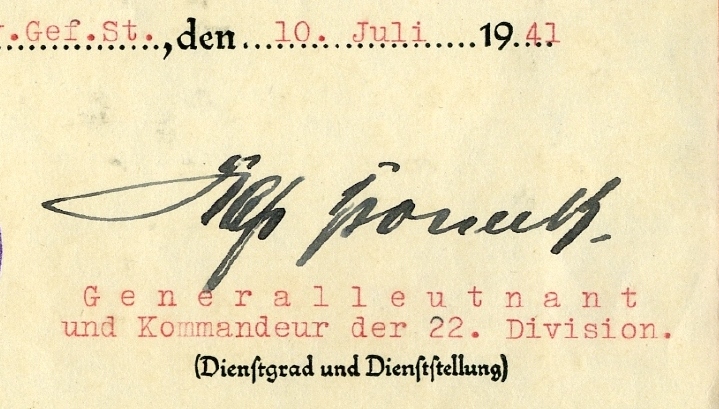 .Gef.St. , den 10. Juli 1941
Generalleutnant
und Kommandeur der 22. Division.
(Dienſtgrad und Dienſtſtellung)